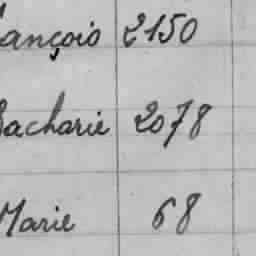 ançois 2150
Zacharie 2078
Marie 68